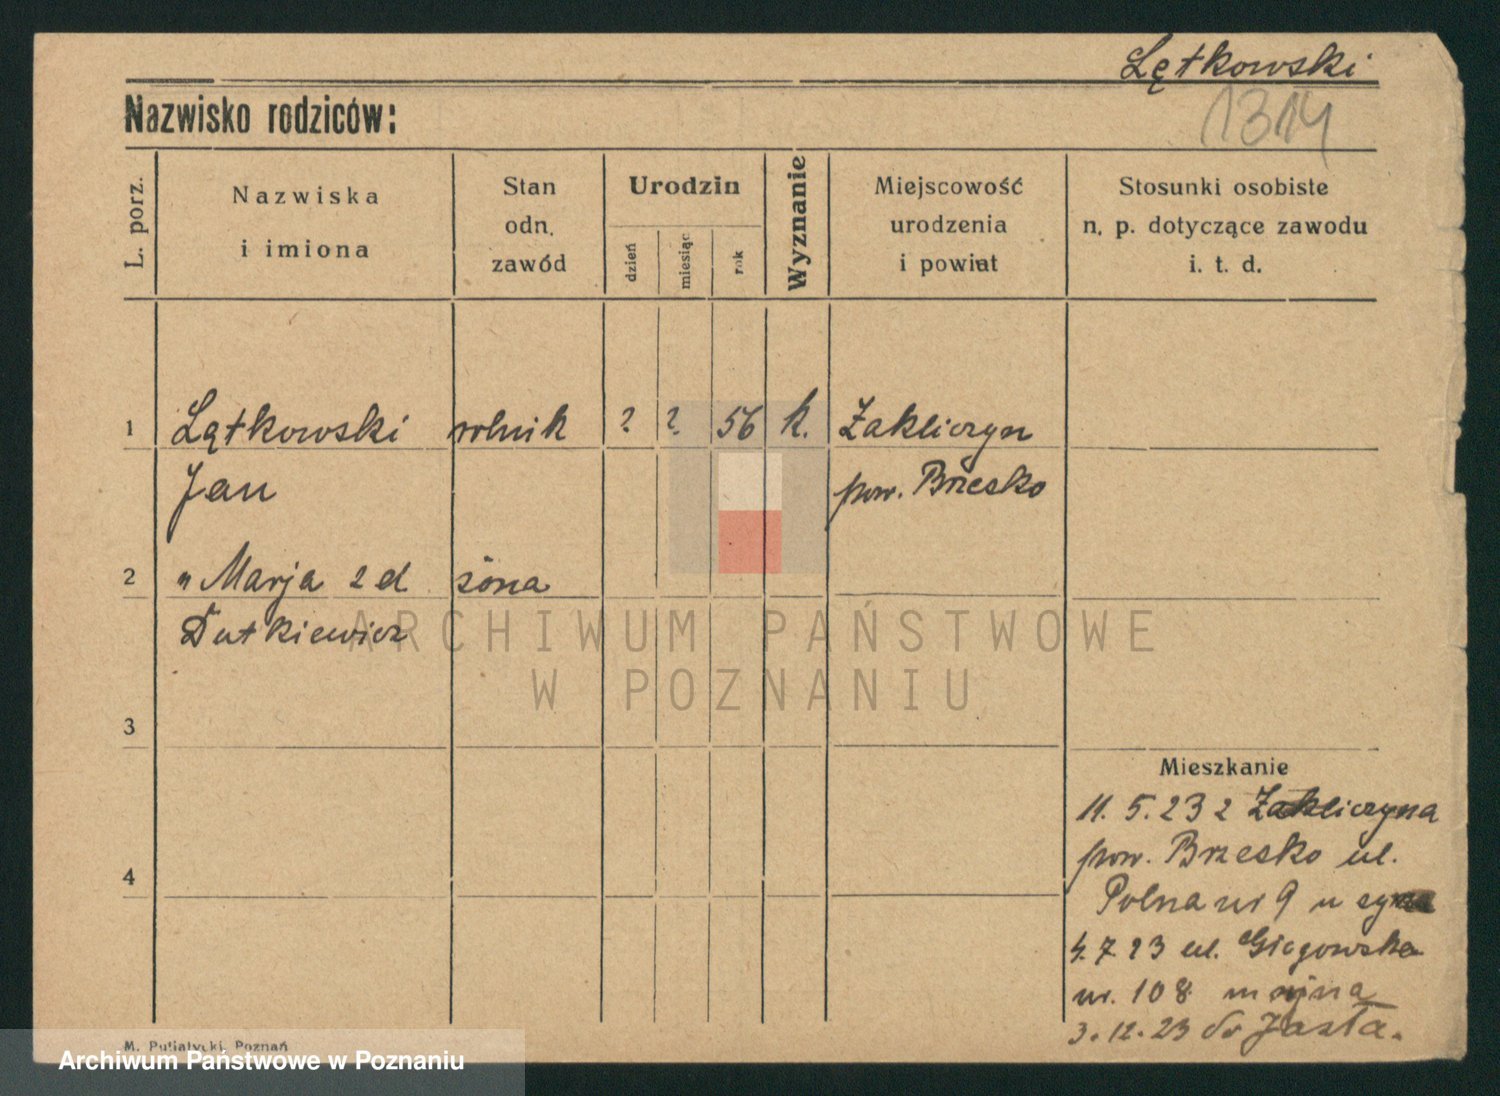 Lętkowski
1314
Nazwisko rodziców:
L. porz.
Nazwiska
i imiona
Stan
odn.
zawód
Urodzin
dzień
miesiąc
rok
Wyznanie
Miejscowość
urodzenia
i powiat
Stosunki osobiste
n. p. dotyczące zawodu
i. t. d.
1 Lątkowski rolnik ? ? 56 k. Zakliczyn
Jan pow. Brzesko
2 " Marja zd żona
Dutkiewicz
ARCHIWUM PAŃSTWOWE
W POZNANIU
3
4
Mieszkanie
11. 5. 23 z Zakliczyna
pow. Brzesko ul.
Polna nr 9 u syna
4. 7 23 ul. Głogowska
nr. 108
3. 12. 23 do Jasła.
M. Putiatycki, Poznań
Archiwum Państwowe w Poznaniu